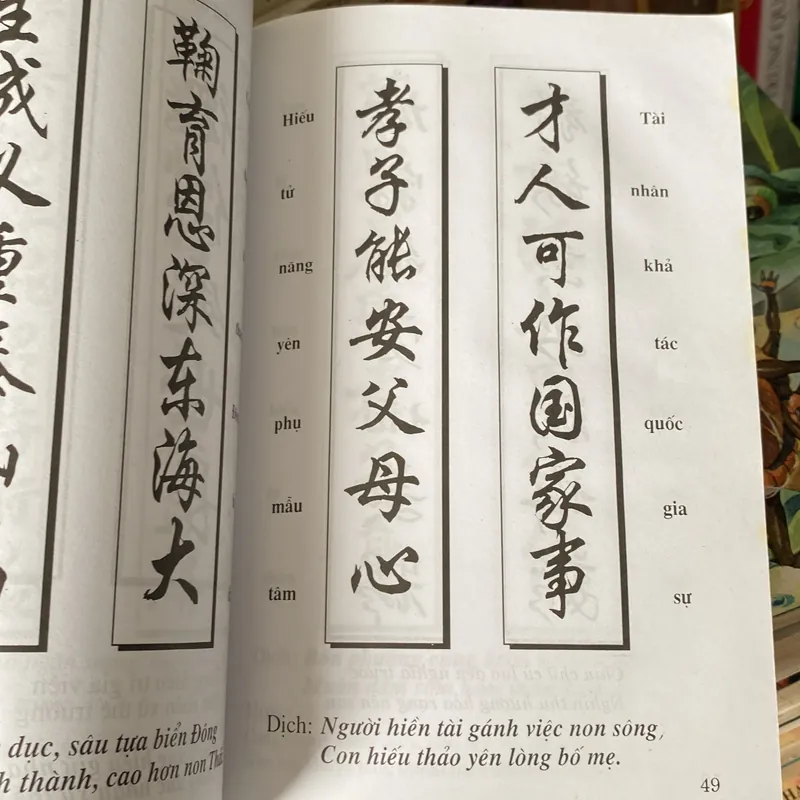 成义重泰
鞠育恩深东海大
dục, sâu tựa biển Đông
thành, cao hơn non
才人可作国家事
Tài
nhân
khả
tác
quốc
gia
sự
孝子能安父母心
Hiếu
tử
năng
yên
phụ
mẫu
tâm
Dịch: Người hiền tài gánh việc non sông,
Con hiếu thảo yên lòng bố mẹ.
49